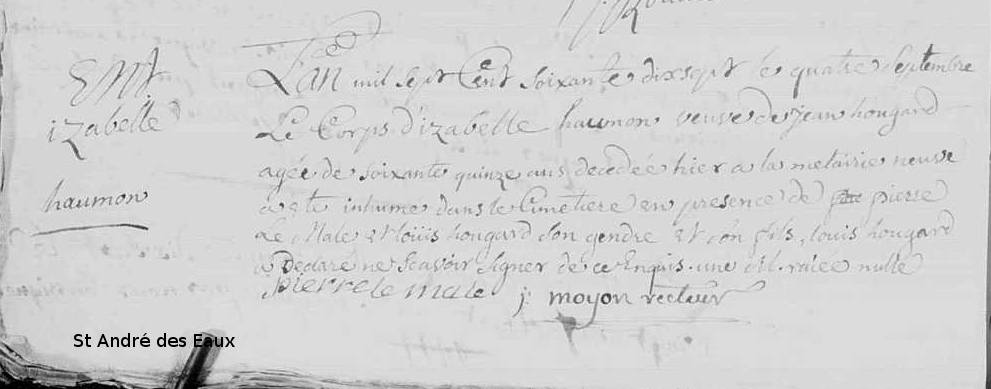 Ent
izabelle
haumon
L'an mil sept Cent soixante dixsept le quatre septembre
Le Corps d'izabelle haumon veuve de jean hougard
agée de soixante quinze ans decedée hier a la metairie neusve
a eté inhume dans le Cimetiere en presence de pierre
Le Male et louis hougard son gendre et son fils, louis hougard
a Declaré ne scavoir signer de ce Enquis. une ... raiée nulle
pierre le male j: moyon recteur
St André des Eaux